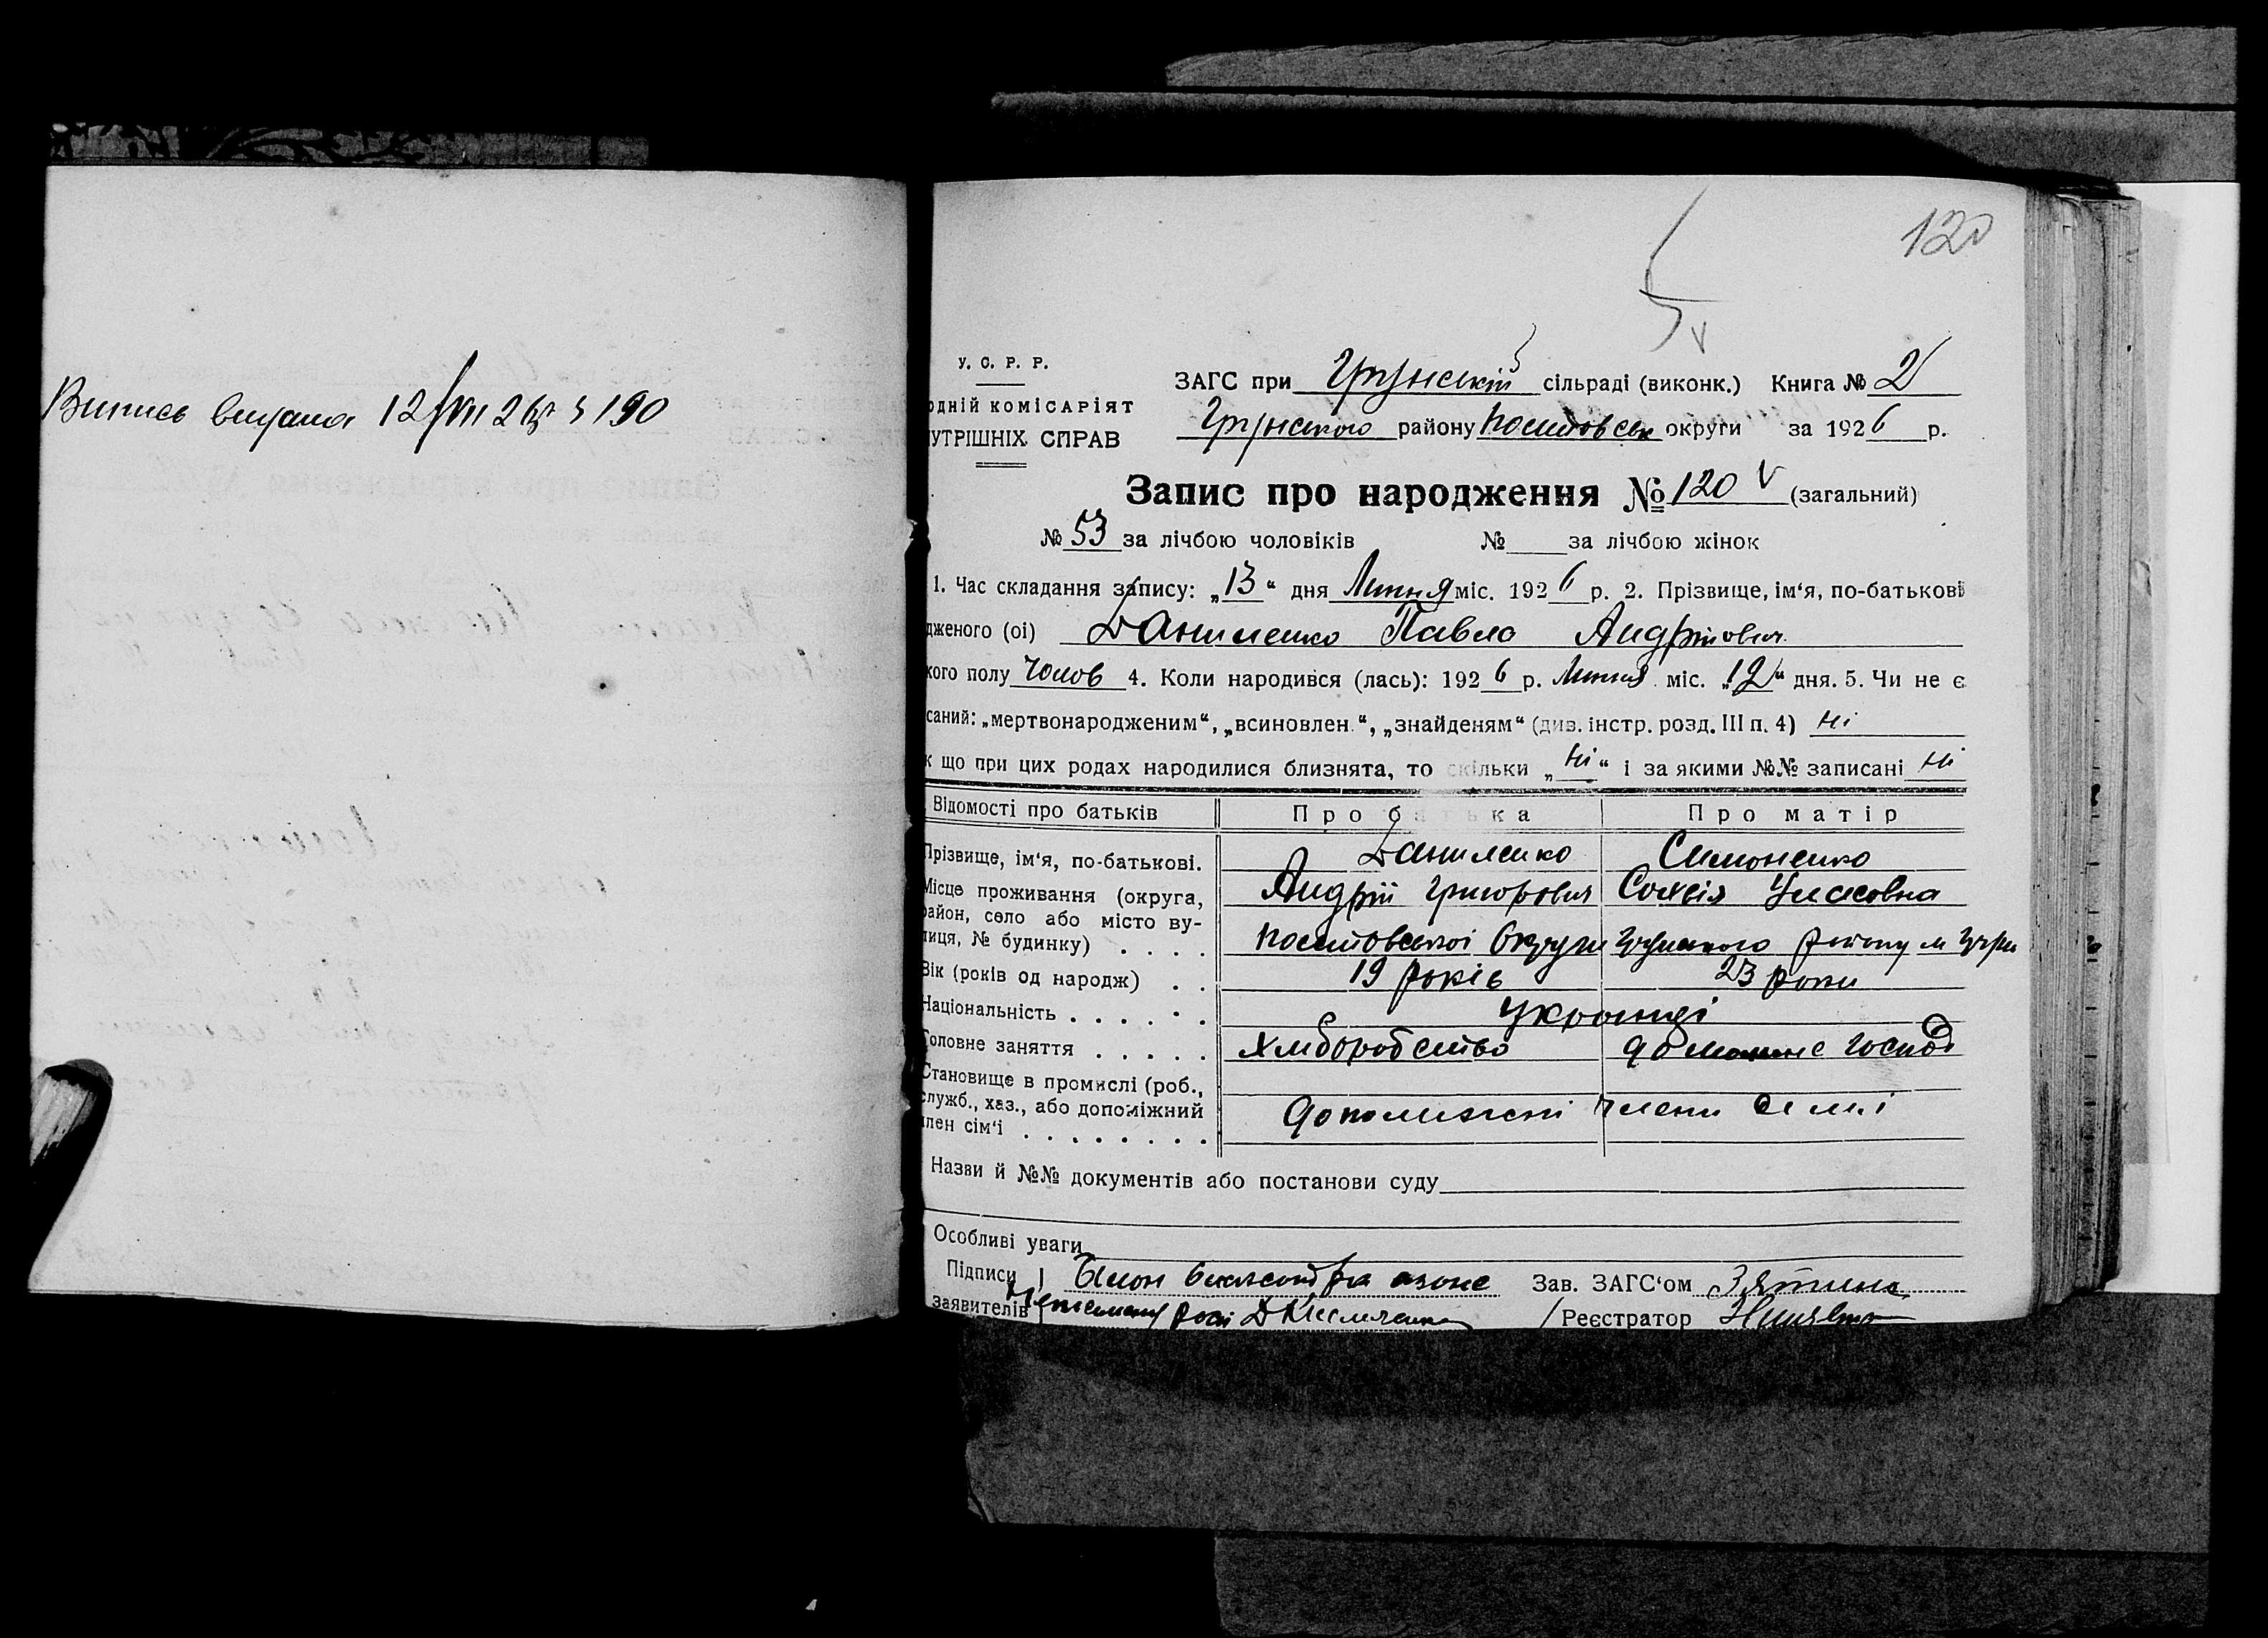 Випись видана 12/VII 26 р 190
120
У. С. Р. Р.
одній комісаріят
утрішніх справ
ЗАГС при Грунській сільраді (виконк.) Книга № 2
Грунського району округи за 1926 р.
Запис про народження № 120 V (загальний)
№ 53 за лічбою чоловіків № за лічбою жінок
1. Час складання запису: „13“ дня Липня міс. 1926 р. 2. Прізвище, ім‘я, по-батькові
дженого (ої) Даниленко Павло Андрійович
кого полу Чолов 4. Коли народився (лась): 1926 р. Липня міс. „12“ дня. 5. Чи не є
саний: „мертвонародженим“, „всиновлен.“, „знайденям“ (див. інстр. розд. III п. 4) ні
к що при цих родах народилися близнята, то скільки „ні“ і за якими №№ записані ні
Відомості про батьків Про батька Про матір
Прізвище, ім‘я, по-батькові. Даниленко Симоненко
Місце проживання (округа, Андрій Григорович Софія
район, село або місто ву-
лиця, № будинку) . . . . Округи району м Грунь
Вік (років од народж) . . 19 років 23 роки
Національність . . . . . . Українці
Головне заняття . . . . . Хліборобство домашнє господ
Становище в промислі (роб.,
служб., хаз., або допоміжний допоміжні члени семі
член сім‘ї . . . . . . . .
Назви й №№ документів або постанови суду
Особливі уваги
Підписи Зав. ЗАГС‘ом
заявителів Реєстратор